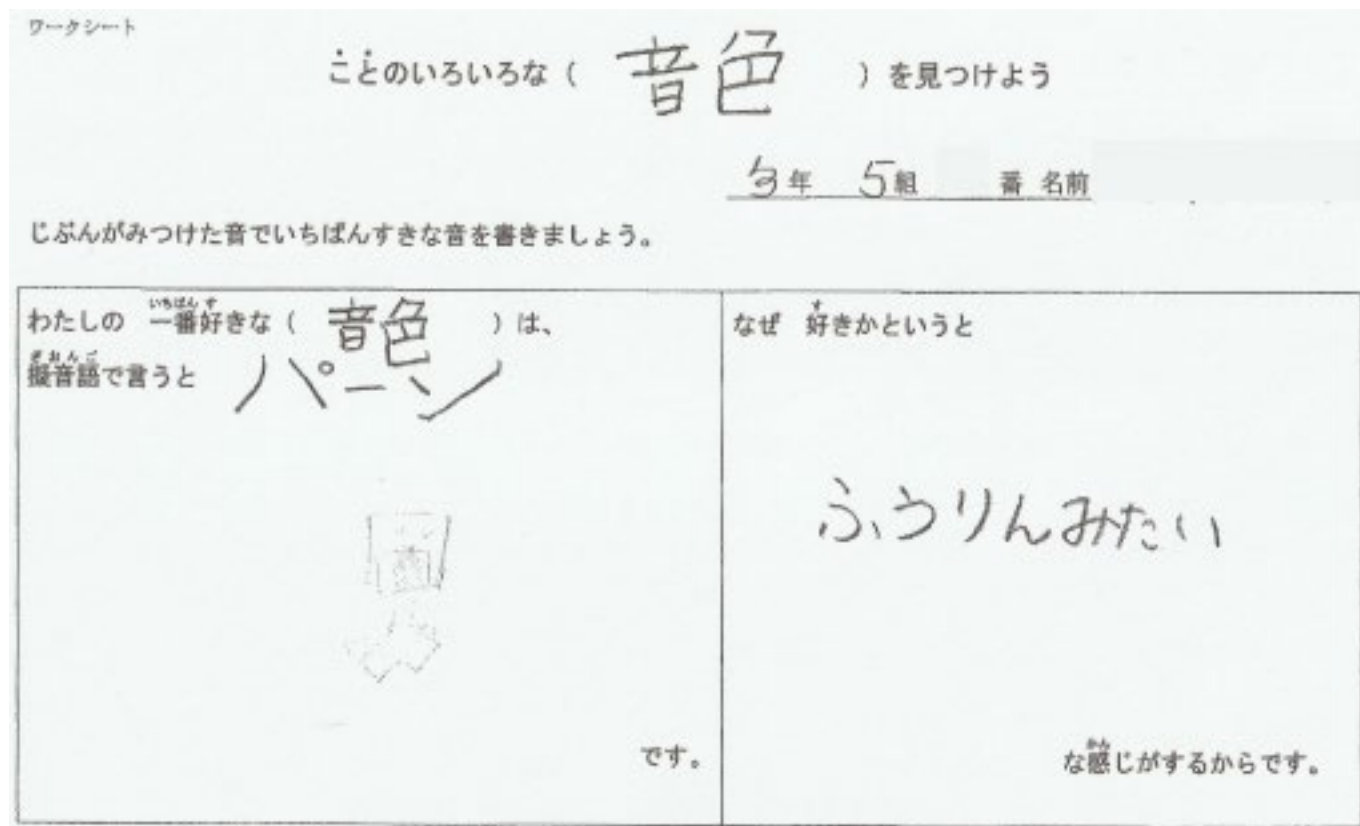 ワークシート
ことのいろいろな（ 音色 ）を見つけよう
3年 5組 番 名前
じぶんがみつけた音でいちばんすきな音を書きましょう。
わたしの 一番好きな（ 音色 ）は、
擬音語で言うと パーン
です。
なぜ 好きかというと
ふうりんみたい
な感じがするからです。